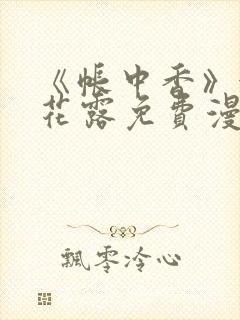 《帐中香》
花露免费漫
飘零冷心